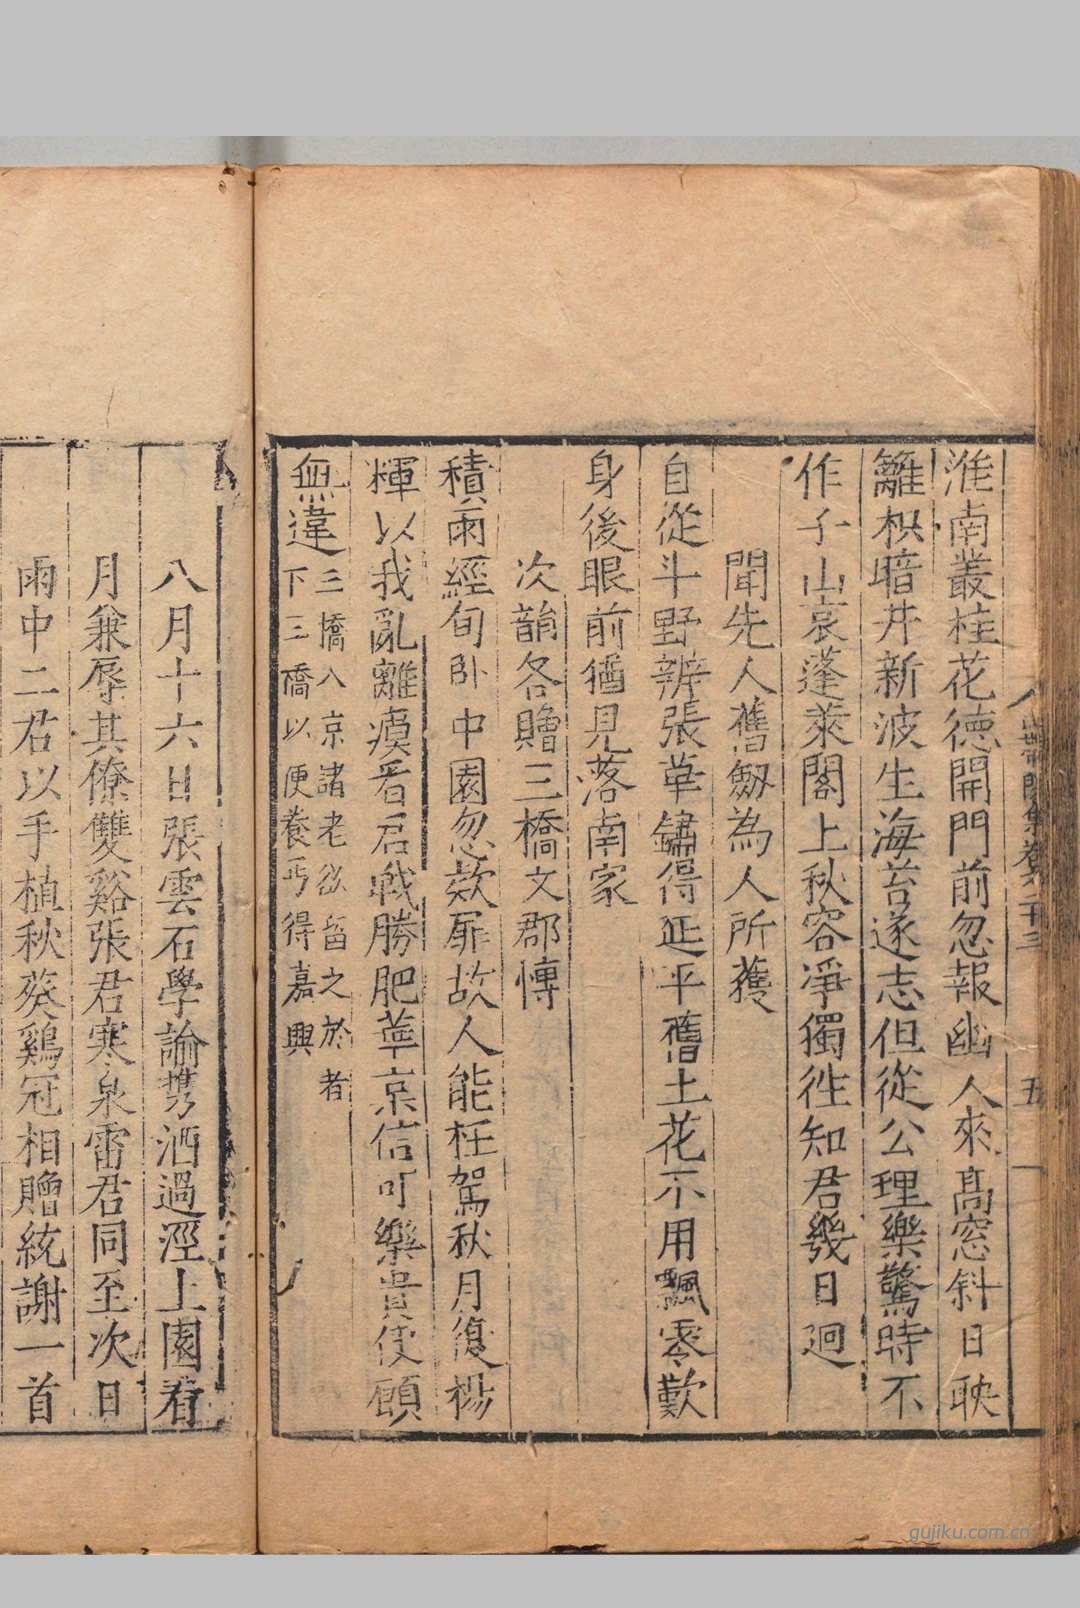 淮南叢桂花德開門前忽報幽人來高窓斜日映
籬枳暗井新波生海苔遂志但從公理樂驚時不
作子山哀蓬萊閣上秋容凈獨徃知君幾日廻
聞先人舊劔為人所獲
自從斗野辨張華鏽得延平舊土花不用飄零歎
身後眼前猶見落南家
次韻各贈三橋文郡愽
積雨經旬卧中園忽欵扉故人能枉駕秋月復楊
輝以我亂離瘼看君戰勝肥華京信可樂貴使願
無違三橋入京諸老欲留之於者
下三橋以便養丐得嘉興
卷之十三
五
八月十六日張雲石學諭携酒過溼上園看
月兼辱其僚雙谿張君寒泉雷君同至次日
雨中二君以手植秋葵鷄冠相贈統謝一首
gujiku.com.cn